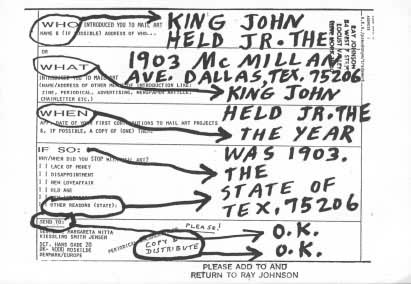 WHO INTRODUCED YOU TO MAIL ART
NAME & (IF POSSIBLE) ADDRESS OF WHO...
KING JOHN
HELD JR. THE
RAY JOHNSON
OR
WHAT
INTRODUCED YOU TO MAIL ART
(NAME/ADDRESS OF OTHER MEANS OF INTRODUCTION LIKE:
ZINE, PERIODICAL, ADVERTISING, NEWSPAPER ARTICLE,
CHAINLETTER ETC.)
1903 McMILLAN
AVE. DALLAS, TEX. 75206
KING JOHN
WHEN
DATE OF YOUR FIRST CONTRIBUTIONS TO MAIL ART PROJECTS
&, IF POSSIBLE, A COPY OF (ONE) THEM
HELD JR. THE
THE YEAR
IF SO:
WHY/WHEN DID YOU STOP MAIL ART?
[ ] LACK OF MONEY
[ ] DISAPPOINTMENT
[ ] NEW LOVEAFFAIR
[ ] OLD AGE
OTHER REASONS (STATE):
WAS 1903.
THE
STATE OF
TEX, 75206
SEND TO:
MARGARETA WITTA
KIESSLING SMITH JENSEN
SCT. HANS GADE 20
DK- 4000 ROSKILDE
DENMARK/EUROPE
PLEASE!
COPY &
DISTRIBUTE
O.K.
O.K.
PLEASE ADD TO AND
RETURN TO RAY JOHNSON